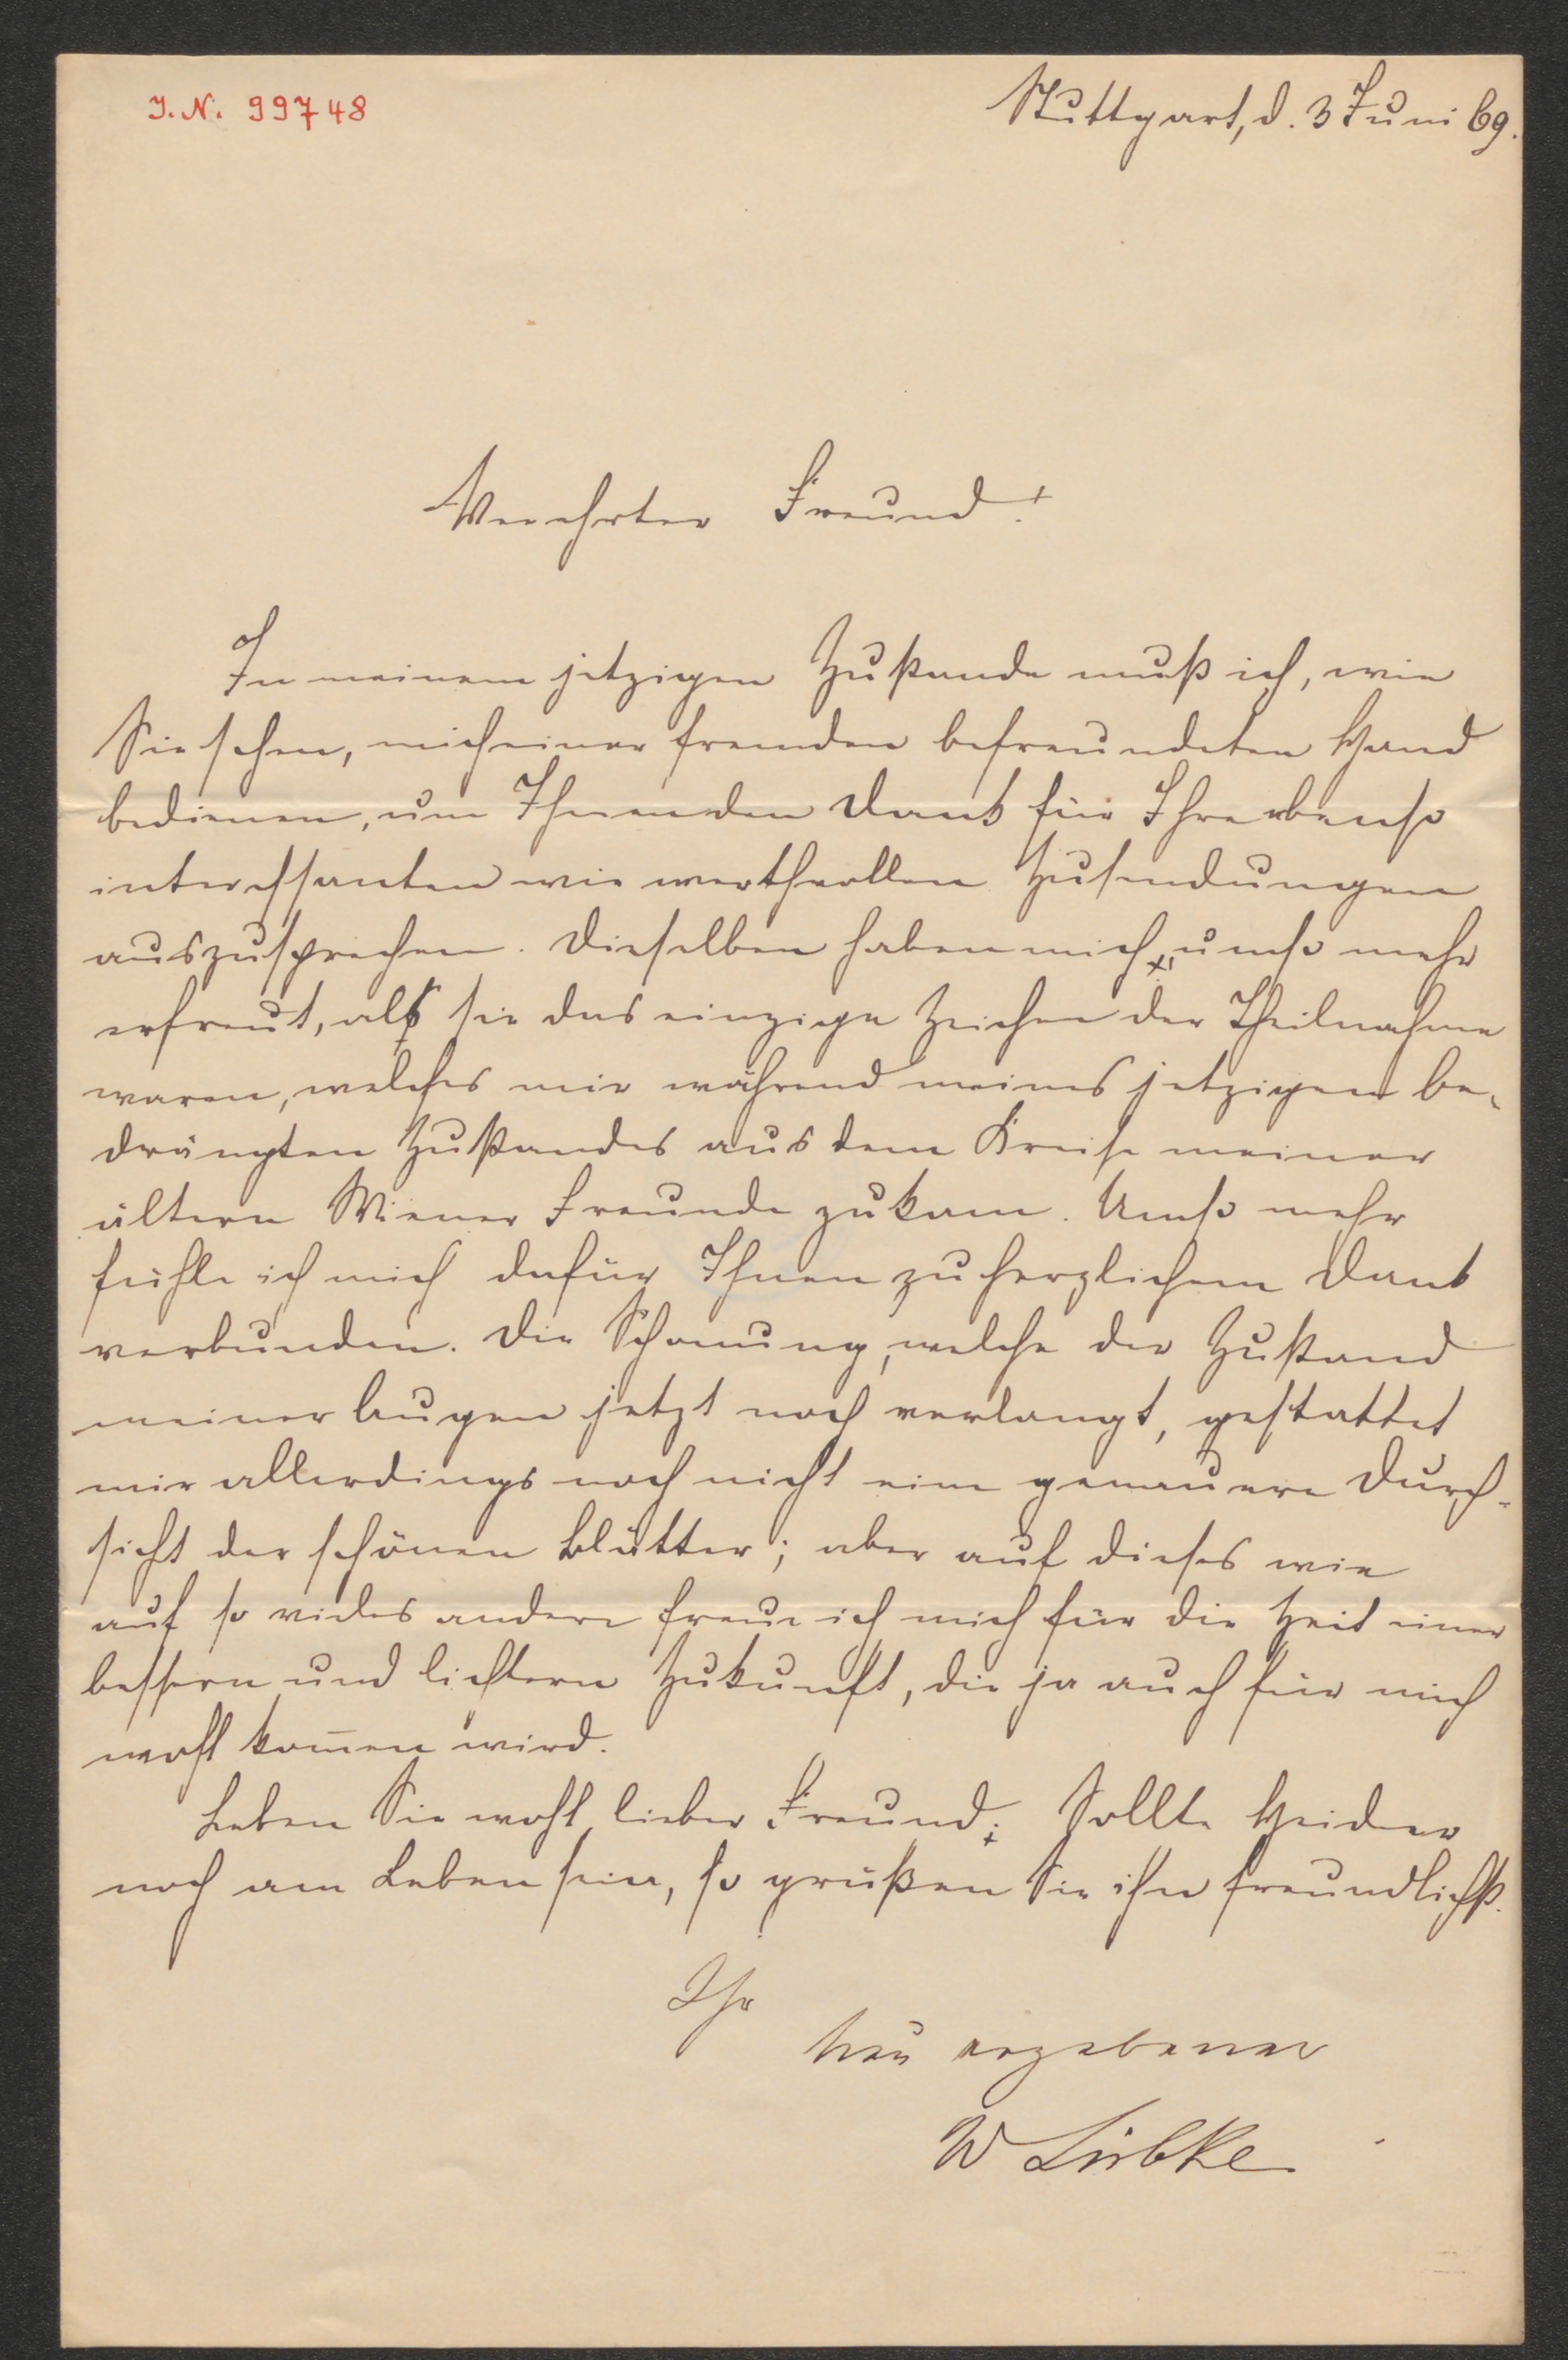 J. N. 99748
Stuttgart, d. 3 Juni 69.
Verehrter Freund!
In meinem jetzigen Zustande muß ich, wie
Sie sehen, mich einer fremden befreundeten Hand
bedienen, um Ihnen den Dank für Ihre ebenso
interessanten wie werthvollen Zusendungen
auszusprechen. Dieselben haben mich umso mehr
erfreut, als sie das einzige Zeichen der Theilnahme
waren, welches mir während meines jetzigen be-
drängten Zustandes aus dem Kreise meiner
ältern Wiener Freunde zukam. Umso mehr
fühle ich mich dafür Ihnen zu herzlichem Dank
verbunden. Die Schonung, welche der Zustand
meiner Augen jetzt noch verlangt, gestattet
mir allerdings noch nicht eine genauere Durch-
sicht der schönen Blätter; aber auf dieses wie
auf so vieles andere freue ich mich für die Zeit einer
bessern und lichtern Zukunft, die ja auch für mich
wohl kom̄en wird.
Leben Sie wohl, lieber Freund; Sollte Heider
noch am Leben sein, so grüßen Sie ihn freundlichst.
Ihr
treu ergebener
W Lübke